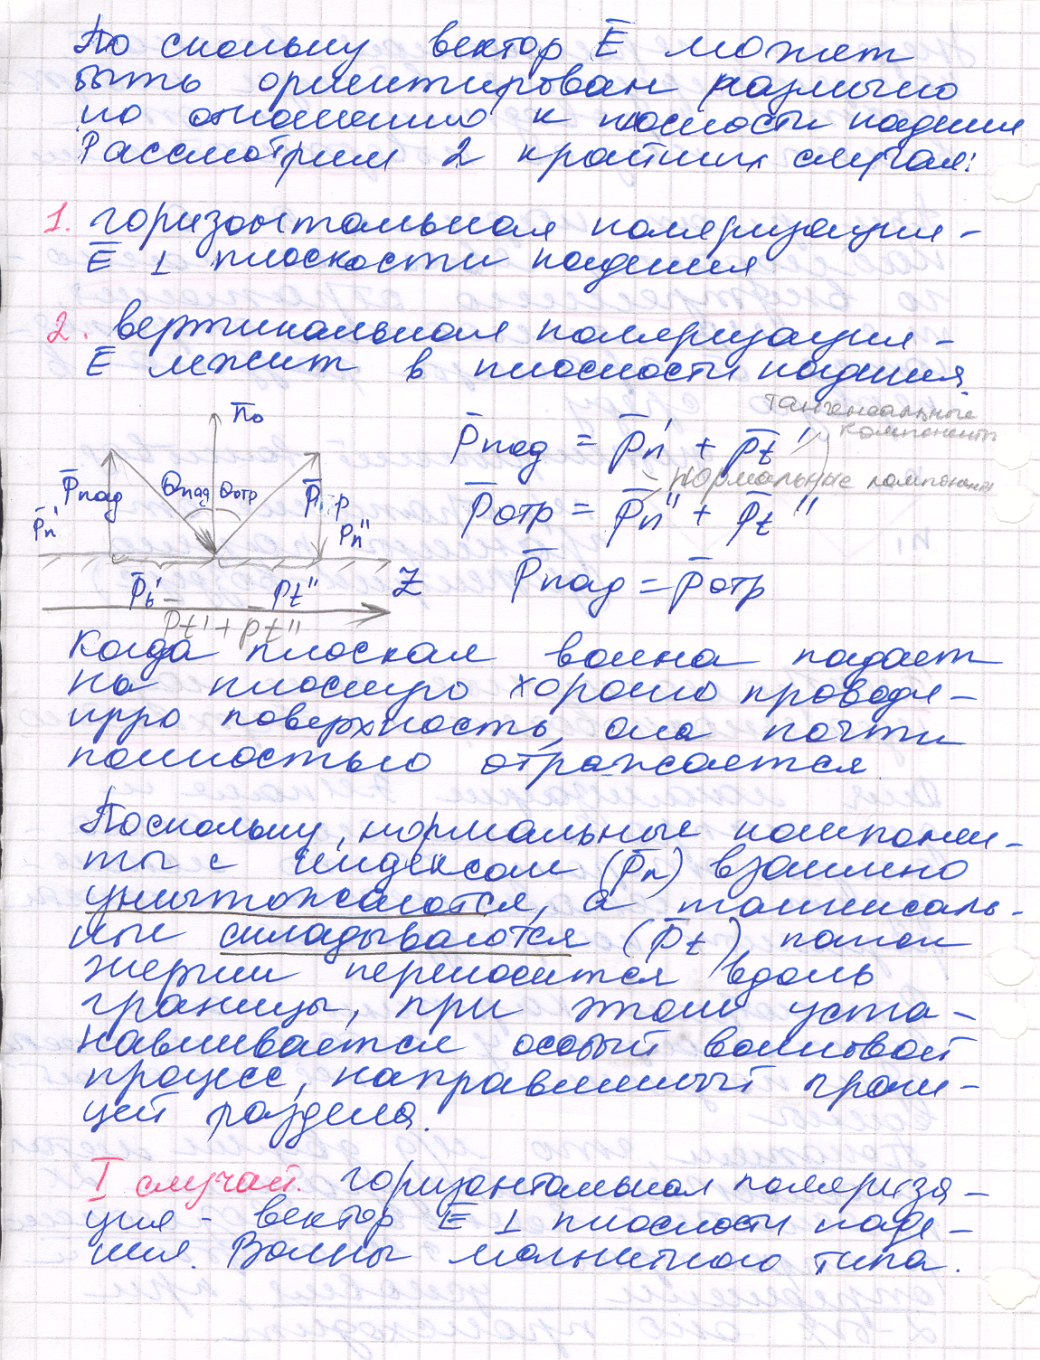 По скольку вектор E̅ может
быть ориентирован различно
по отношению к плоскости падения
Рассмотрим 2 крайних случая:
1. горизонтальная поляризация -
E̅ ⊥ плоскости падения
2. вертикальная поляризация -
E̅ лежит в плоскости падения.
n̅₀
P̅пад θпад θотр P̅n'
P̅n''
P̅t' Pt'' Z
Pt' + Pt''
P̅пад = P̅n' + P̅t'
тангенсальные
компоненты
нормальные компоненты
P̅отр = P̅n'' + P̅t''
P̅пад = P̅отр
Когда плоская волна падает
на плоскую хорошо проводя-
щую поверхность, она почти
полностью отражается
Поскольку, нормальные компонен-
ты с индексом (P̅n) взаимно
уничтожаются, а тангенсаль-
ные складываются (P̅t), поток
энергии переносится вдоль
границы, при этом уста-
навливается особый волновой
процесс, направленный грани-
цей раздела.
I случай. горизонтальная поляриза-
ция - вектор E̅ ⊥ плоскости паде-
ния. Волны магнитного типа.